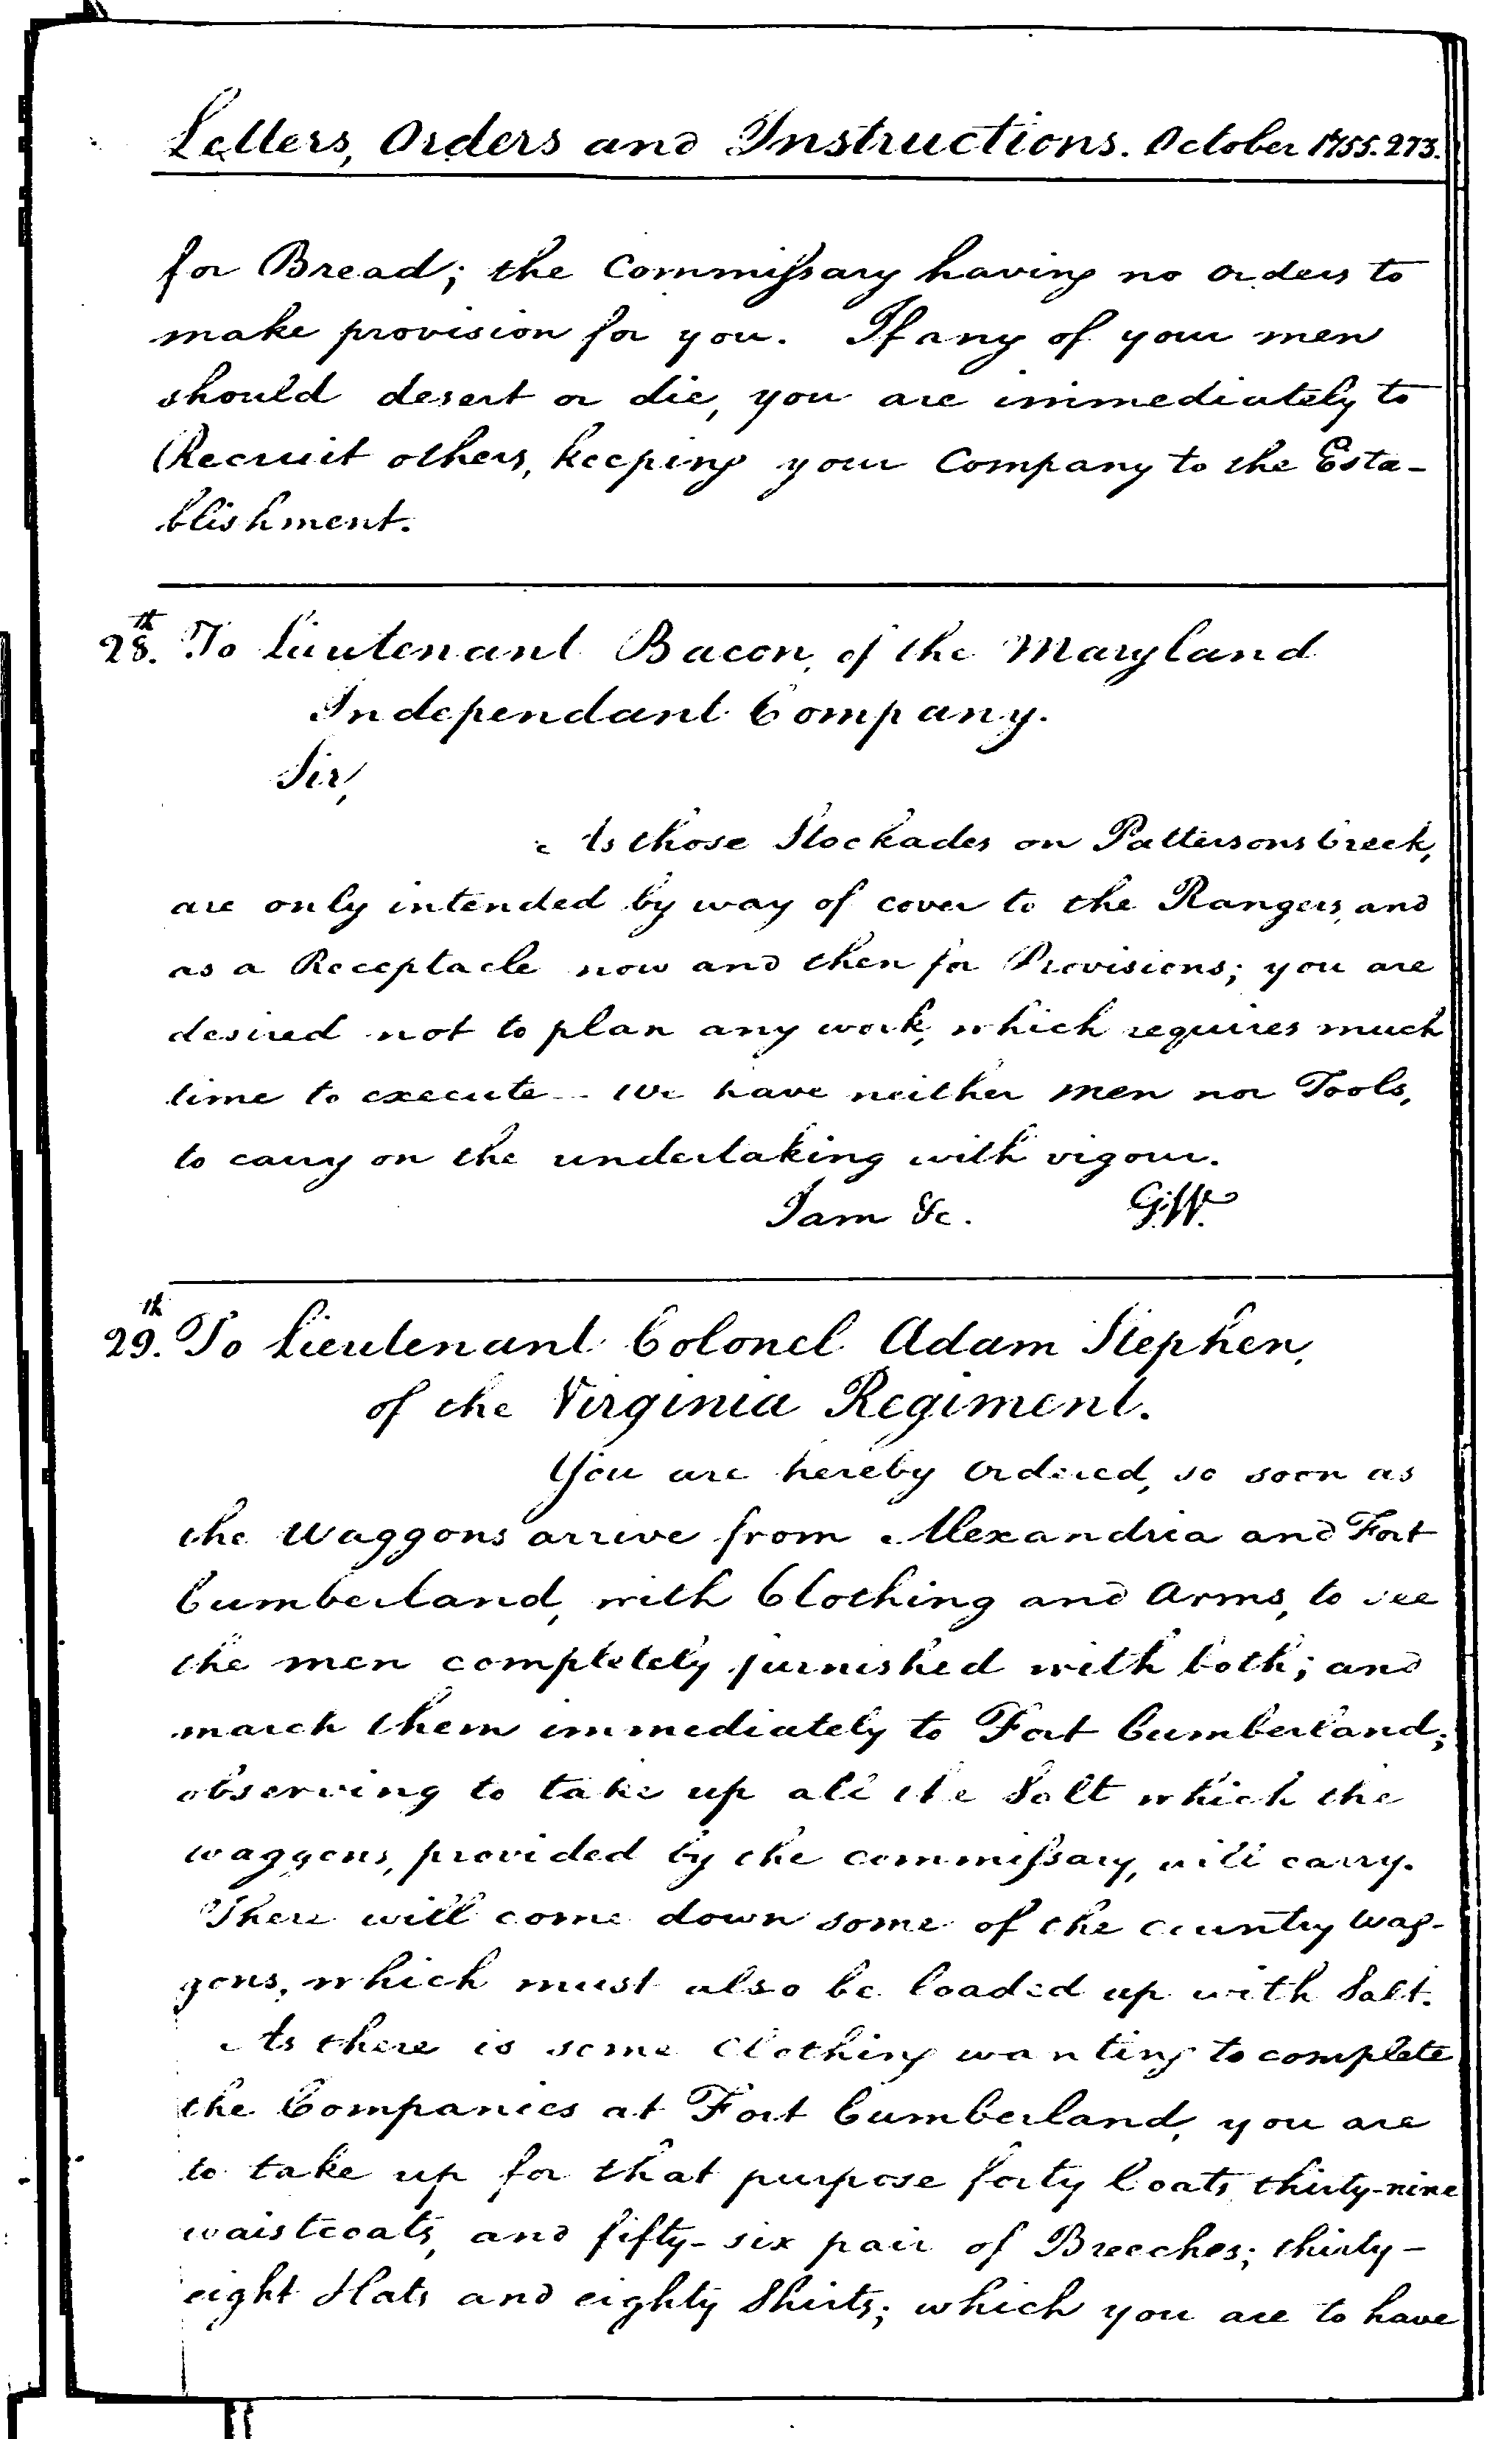 Letters, Orders and Instructions. October 1755. 273.
for Bread; the Commissary having no orders to
make provision for you. If any of your men
should desert or die, you are immediately to
Recruit others, keeping your Company to the Esta-
blishment.
28.th To Lieutenant Bacon, of the Maryland
Independant Company.
Sir,
As those Stockades on Pattersons Creek,
are only intended by way of cover to the Rangers, and
as a Receptacle now and then for Provisions; you are
desired not to plan any work, which requires much
time to execute -- We have neither men nor Tools,
to carry on the undertaking with vigour.
I am &c. G:W.
29.th To Lieutenant Colonel Adam Stephen,
of the Virginia Regiment.
You are hereby Ordered, so soon as
the Waggons arrive from Alexandria and Fort
Cumberland, with Clothing and Arms, to see
the men completely furnished with both; and
march them immediately to Fort Cumberland;
observing to take up all the Salt which the
waggons, provided by the commissary, will carry.
There will come down some of the country wag-
gons, which must also be loaded up with Salt.
As there is some Clothing wanting to complete
the Companies at Fort Cumberland, you are
to take up for that purpose forty Coats, thirty-nine
waistcoats, and fifty-six pair of Breeches; thirty-
eight Hats and eighty Shirts; which you are to have